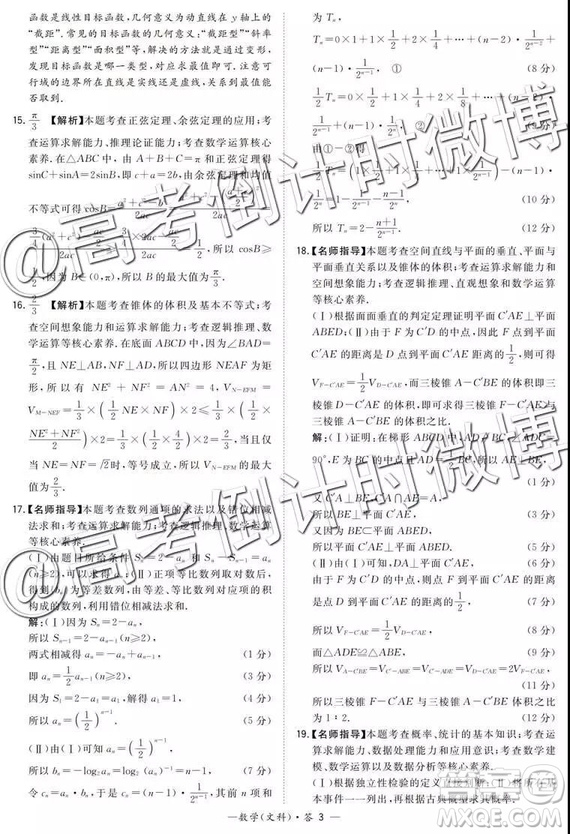 函数是线性目标函数,几何意义为动直线在 y 轴上的
“截距”.常见的目标函数的几何意义:“截距型”“斜率
型”“距离型”“面积型”等,解决方法就是通过变形,
发现目标函数是哪一类型,对应求出最值.注意可
行域的边界所在直线是实线还是虚线,关系到最值能
否取到.
15. π/3 【解析】本题考查正弦定理、余弦定理的应用;考
查运算求解能力、推理论证能力;考查数学运算核心
素养.在△ABC中,由 A+B+C=π和正弦定理得
sinC+sinA=2sinB,即 c+a=2b,由余弦定理和均值
不等式可得 cosB=
所以 cosB≥
因为 B∈(0,π),所以 B 的最大值为 π/3.
16. 2/3 【解析】本题考查锥体的体积及基本不等式;考查
空间想象能力和运算求解能力;考查逻辑推理、数学运
算等核心素养.在底面 BACD 中,因为∠BAD=
π/2,且 NE⊥AB,NF⊥AD,所以四边形 NEAF 为矩
形,所以有 NE²+NF²=AN²=4,V_{N-EFM}=
V_{M-NEF}=1/3×(1/2 NE×NF)×2≤1/3×1/2×
(NE²+NF²)/2 ×2=1/3×(1/2×4/2)×2=2/3,当且
仅当 NE=NF=√2时,等号成立,所以 V_{N-EFM}的最大
值为 2/3.
17.【名师指导】本题考查数列通项的求法以及错位相减
法求和;考查运算求解能力;考查逻辑推理、数学运算
等核心素养.
(Ⅰ)由题目所给条件 Sₙ=2-aₙ,Sₙ-Sₙ₋₁=aₙ
(n≥2),可以求得 aₙ;(Ⅱ)正项等比数列取对数后,
bₙ 成为等差数列,等差数列与等比数列对应项的积
构成的数列,利用错位相减法求和.
解:(Ⅰ)因为 Sₙ=2-aₙ,
所以 Sₙ₋₁=2-aₙ₋₁(n≥2),
两式相减得 aₙ=-aₙ+aₙ₋₁, (1 分)
即 aₙ=1/2 aₙ₋₁(n≥2). (2 分)
因为 S₁=2-a₁,所以 a₁=1, (3 分)
所以 aₙ=(1/2)ⁿ⁻¹. (4 分)
(Ⅱ)由(Ⅰ)可知 aₙ=(1/2)ⁿ⁻¹,
所以 bₙ=-log₂aₙ=-log₂ 1/2ⁿ⁻¹=n-1. (7 分)
为 Tₙ=0×1+1×1/2+2×1/4+⋯+(n-2)·1/2ⁿ⁻²+
(n-1)·1/2ⁿ⁻¹, ① (8 分)
1/2 Tₙ=0×1/2+1×1/4+2×1/8+⋯+(n-2)·
1/2ⁿ⁻¹+(n-1)·1/2ⁿ, (9 分)
由①-②得
(11 分)
所以 Tₙ=2-(n+1)/2ⁿ⁻¹. (12 分)
18.【名师指导】本题考查空间直线与平面的垂直、平面与
平面垂直关系以及锥体的体积;考查运算求解能力和
空间想象能力;考查逻辑推理、直观想象和数学运算
等核心素养.
(Ⅰ)根据面面垂直的判定定理证明 C′AE⊥平面
ABED;(Ⅱ)由于 F 为 C′D 的中点,因此 F 到平面
C′AE 的距离是 D 到平面 C′AE 距离的 1/2,则可得
V_{F-C′AE}=1/2 V_{D-C′AE},而三棱锥 A-C′BE 的体积即三
棱锥 C′-ABE 的体积,即可得三棱锥 F-C′AE 与三
棱锥 A-C′BE 的体积之比.
解:(Ⅰ)证明:在梯形 ABCD 中,
90°,E 为 BC 的中点, (1 分)
所以
又因为 CA∩AE=A, (3 分)
所以 BE⊥平面 C′AE.
又因为 BE⊂平面 ABED,
所以平面 C′AE⊥平面 ABED. (5 分)
(Ⅱ)设点 D 到平面 C′AE 的距离为 (6 分)
由于 F 为 C′D 的中点,所以 F 到平面 C′AE 的距离
为 1/2 (7 分)
所以 V_{F-C′AE}=1/2 V_{D-C′AE}. (9 分)
而△ADE≌△ABE,
所以 V_{A-C′BE}=V_{C′-ABE}=V_{C′-ADE}=V_{D-C′AE}=2V_{F-C′AE},
(11 分)
所以三棱锥 F-C′AE 与三棱锥 A-C′BE 的体积
之比为 1∶2. (12 分)
19.【名师指导】本题考查概率、统计的基本知识;考查运
算求解能力、数据处理能力和应用意识;考查数学建
模、数学运算以及数据分析等核心素养.
(Ⅰ)根据独立性检验的定义
本事件一一列出,再根据古典概型求其概率.
—数学(文科)·答 3—
@高考倒计时微博
@高考倒计时微博